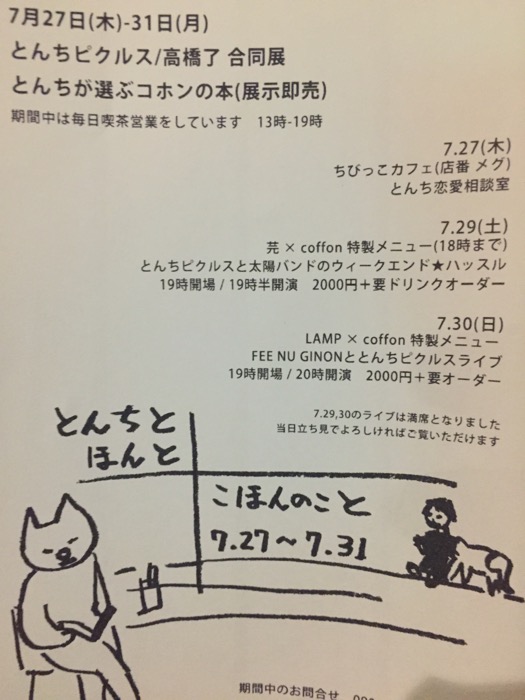 7月27日(木)-31日(月)
とんちピクルス/高橋了 合同展
とんちが選ぶコホンの本(展示即売)
期間中は毎日喫茶営業をしています 13時-19時
7.27(木)
ちびっこカフェ(店番 メグ)
とんち恋愛相談室
7.29(土)
芫 × coffon 特製メニュー(18時まで)
とんちピクルスと太陽バンドのウィークエンド★ハッスル
19時開場 / 19時半開演 2000円+要ドリンクオーダー
7.30(日)
LAMP × coffon 特製メニュー
FEE NU GINONととんちピクルスライブ
19時開場 / 20時開演 2000円+要オーダー
7.29,30のライブは満席となりました
当日立ち見でよろしければご覧いただけます
とんちと
ほんと
こほんのこと
7.27〜7.31
期間中のお問合せ